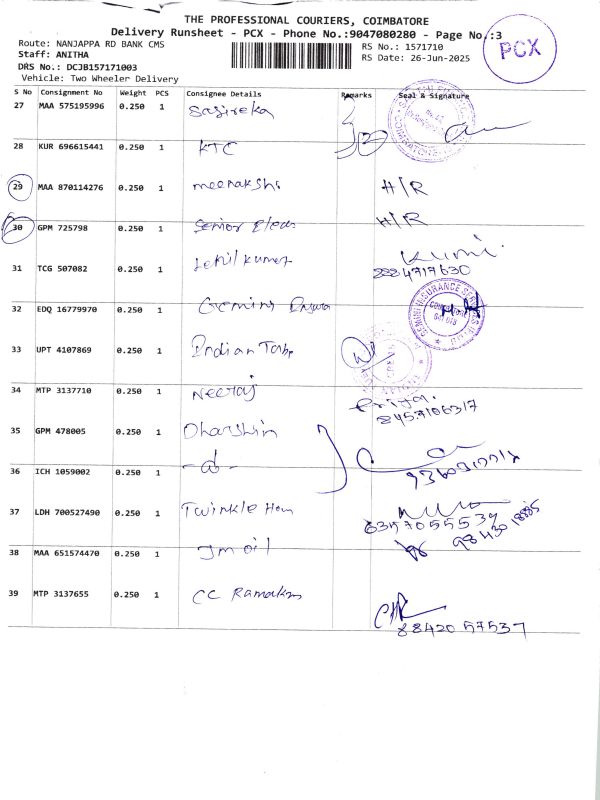 THE PROFESSIONAL COURIERS, COIMBATORE
Delivery Runsheet - PCX - Phone No.:9047080280 - Page No.:3
Route: NANJAPPA RD BANK CMS
Staff: ANITHA
DRS No.: DCJB157171003
Vehicle: Two Wheeler Delivery
RS No.: 1571710
RS Date: 26-Jun-2025
PCX
S No Consignment No Weight PCS Consignee Details Remarks Seal & Signature
27 MAA 575195996 0.250 1 Sasireka
28 KUR 696615441 0.250 1 KTC
29 MAA 870114276 0.250 1 meenakshi H/R
30 GPM 725798 0.250 1 Senior H/R
31 TCG 507082 0.250 1 Kumar
8884717630
32 EDQ 16779970 0.250 1 Gemini
GEMINI INSURANCE
33 UPT 4107869 0.250 1 Indian
34 MTP 3137710 0.250 1 Neeraj Priya.
35 GPM 478005 0.250 1 Dharshin
36 ICH 1059002 0.250 1 -do-
37 LDH 700527490 0.250 1 Twinkle
6397055539
38 MAA 651574470 0.250 1
39 MTP 3137655 0.250 1 CC
88420 57537